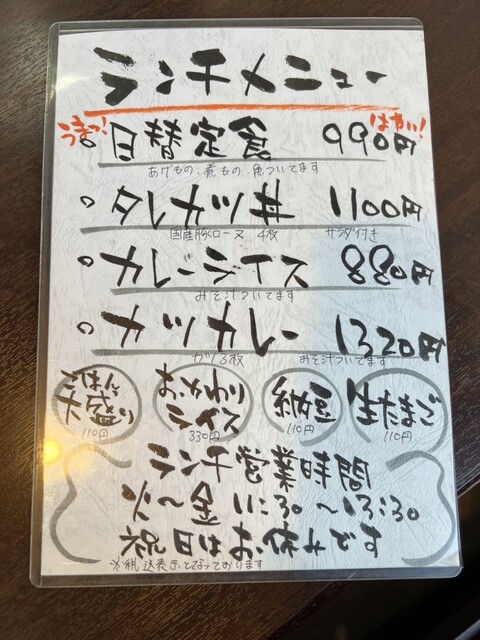 ランチメニュー
うまっ! 日替定食 990円 はやい!
あげもの、煮もの、魚ついてます
○ タレカツ丼 1100円
国産豚ロース 4枚 サラダ付き
○ カレーライス 880円
みそ汁ついてます
○ カツカレー 1320円
カツ3枚 みそ汁ついてます
ごはん大盛り 110円
おかわりライス 330円
納豆 110円
生たまご 110円
ランチ営業時間
火〜金 11:30〜13:30
祝日はお休みです
※税込表示となっております